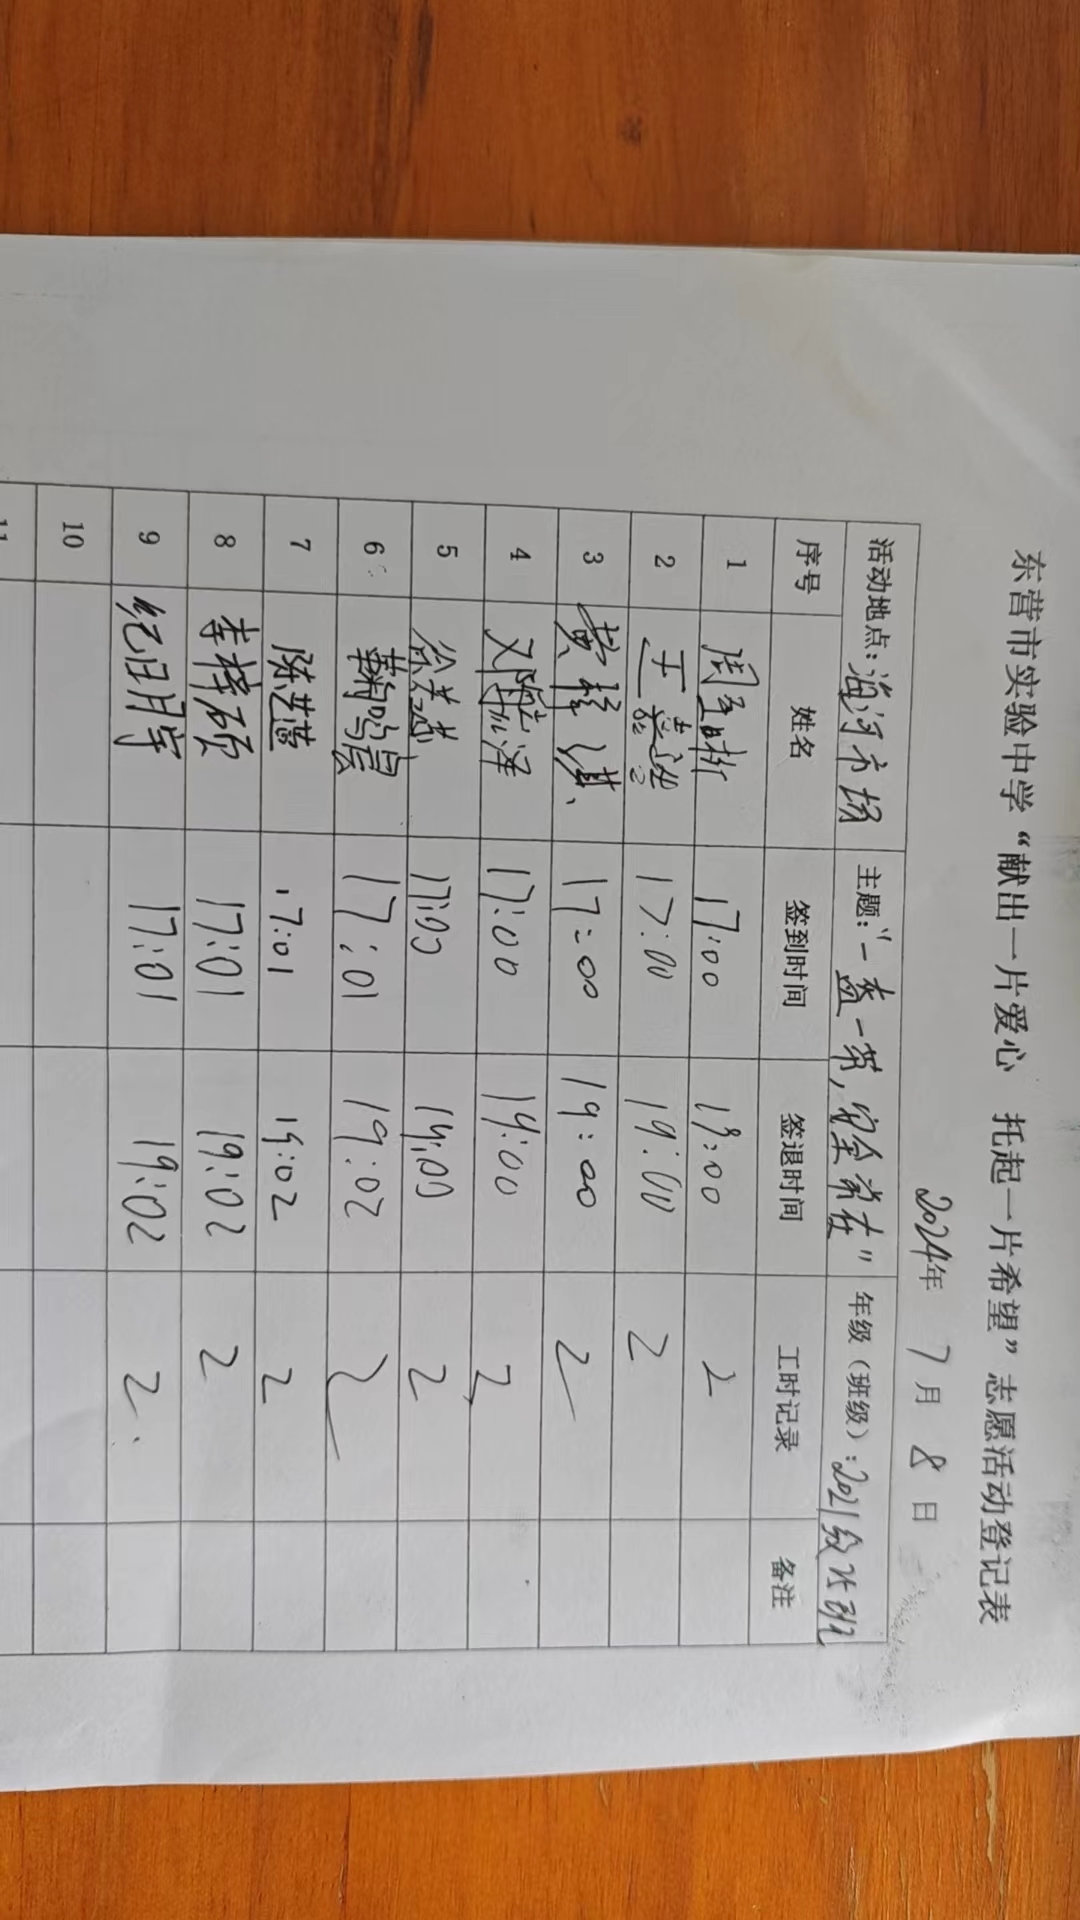 东营市实验中学“献出一片爱心 托起一片希望”志愿活动登记表
2024年 7月 8日
活动地点：海河市场 主题：“一盔一带，安全常在” 年级（班级）：2021级25班
序号 姓名 签到时间 签退时间 工时记录 备注
1 17:00 19:00 2
2 17:00 19:00 2
3 17:00 19:00 2
4 17:00 19:00 2
5 徐若喆 17:00 19:00 2
6 鞠鸣晨 17:01 19:02 2
7 17:01 19:02 2
8 李梓硕 17:01 19:02 2
9 17:01 19:02 2
10
11